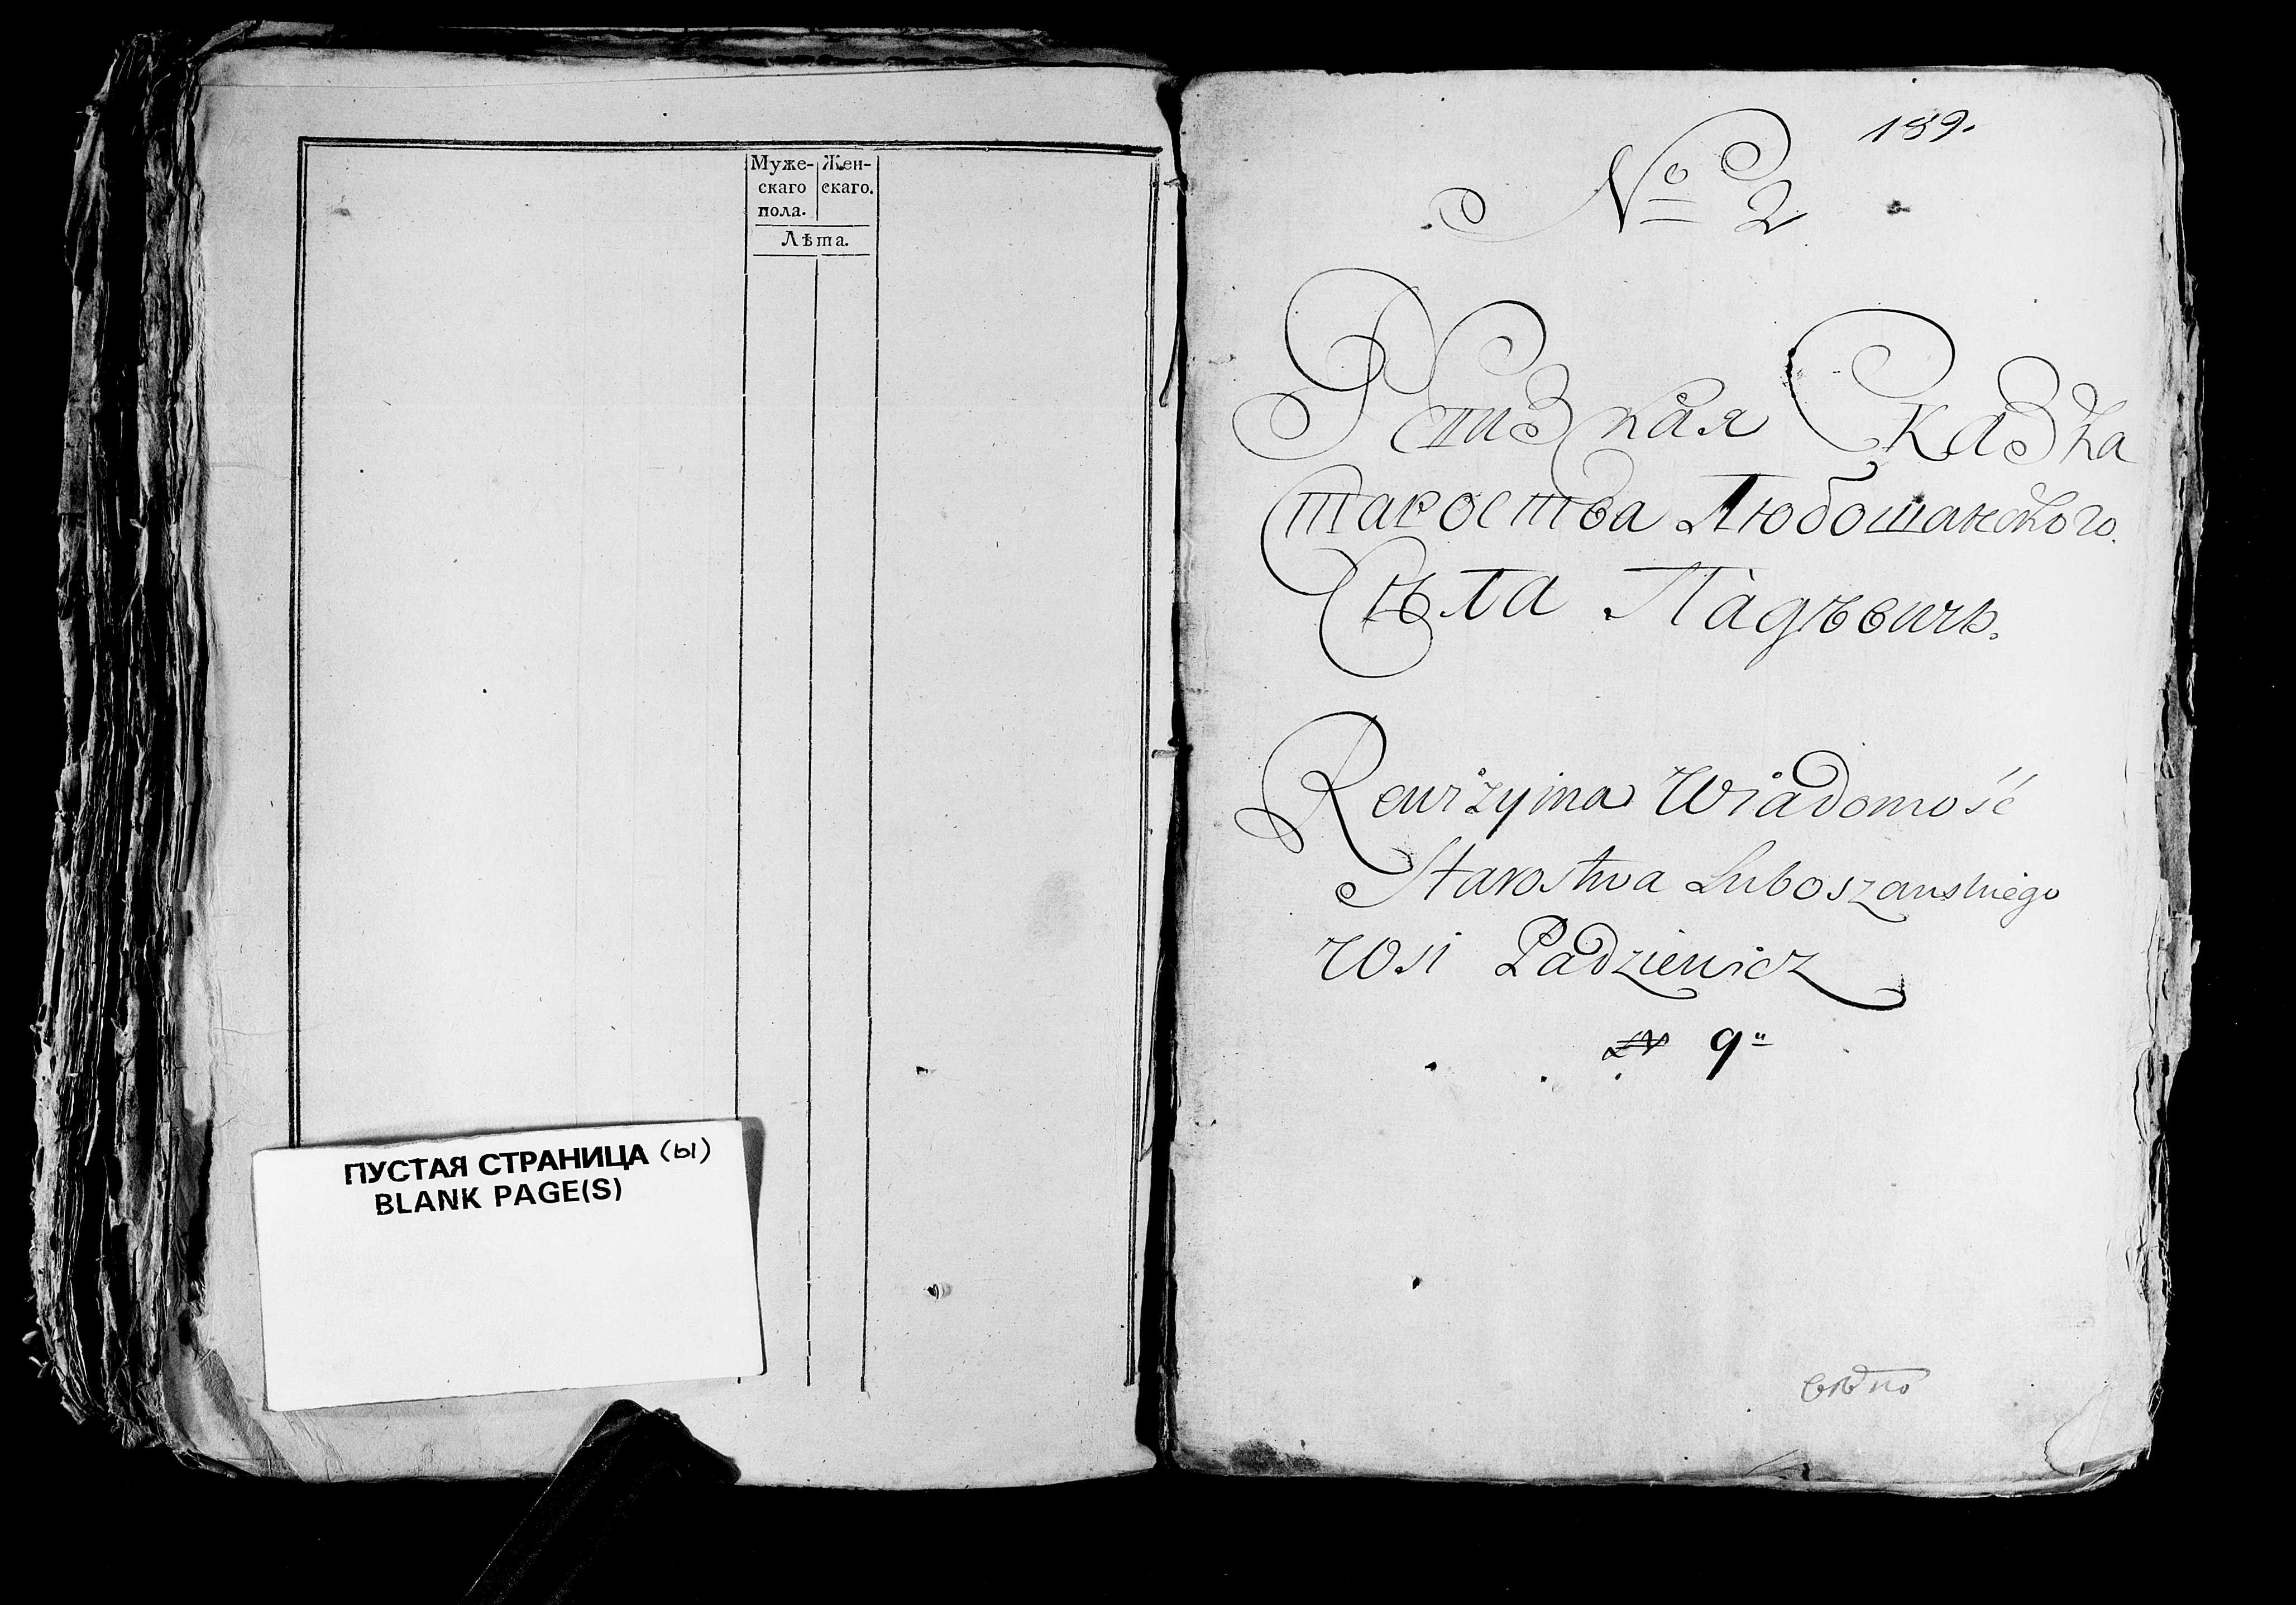 Муже-
скаго
пола.
Жен-
скаго.
Лѣта.
ПУСТАЯ СТРАНИЦА (ы)
BLANK PAGE(S)
189.
№ 2
Ревизкая Сказка
Староства Любошанского
Сѣла Падѣвичь.
Rewizyina Wiadomość
Starostwa Luboszanskiego
Wsi Padziewicz
N 9